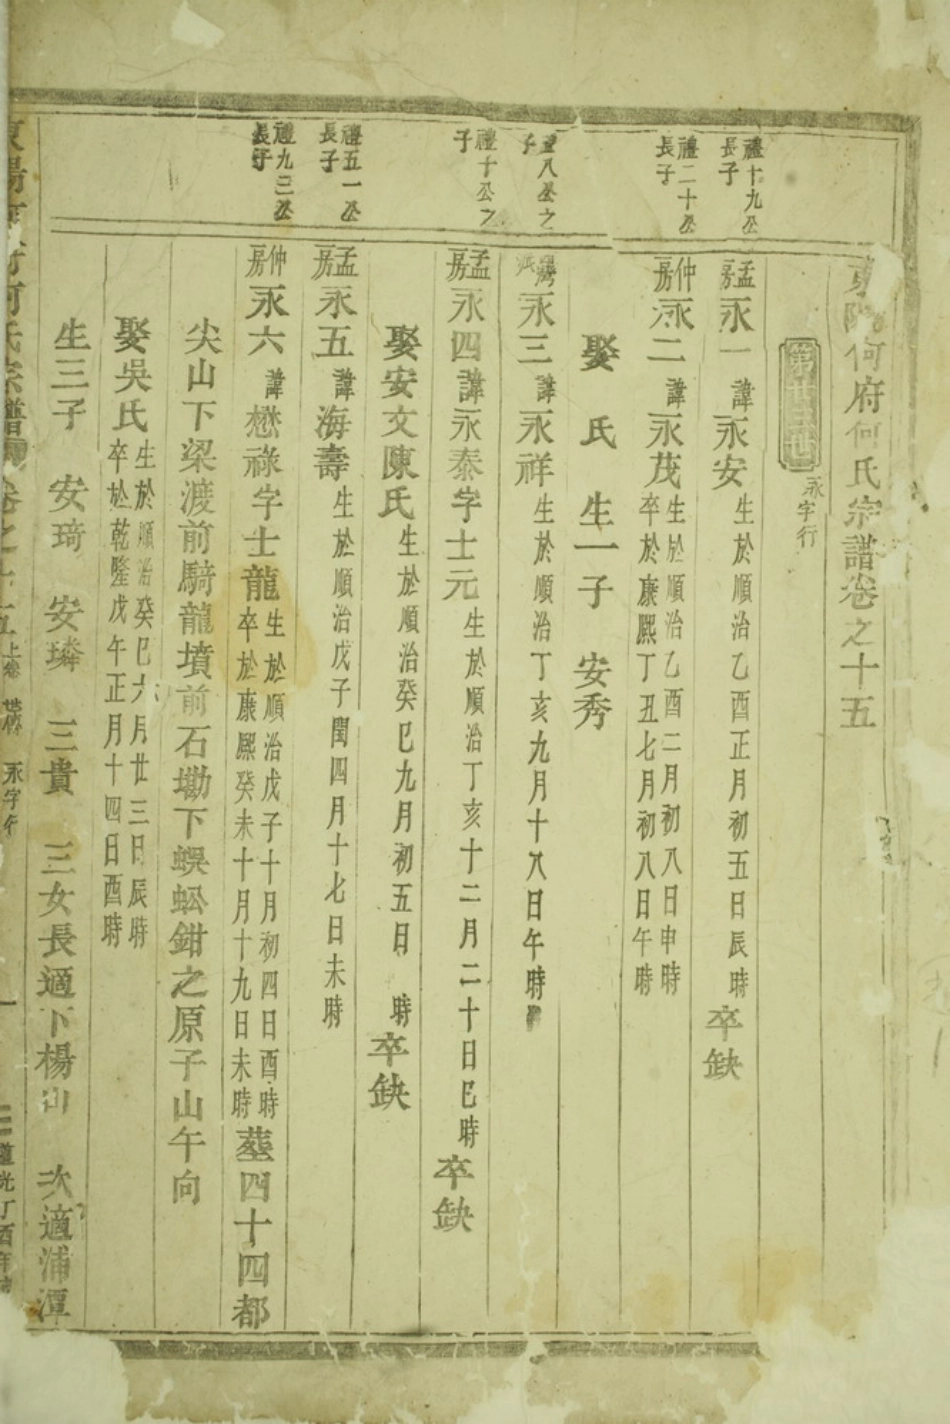 東陽何府何氏宗譜卷之十五
第廿三世
永字行
禮十九公
長子
孟房永一 諱永安 生於順治乙酉正月初五日辰時 卒缺
禮二十公
長子
仲房永二 諱永茂 生於順治乙酉二月初八日申時
卒於康熙丁丑七月初八日午時
娶 氏 生一子 安秀
八公之
子
永三 諱永祥 生於順治丁亥九月十八日午時
禮十公之
子
孟房永四 諱永泰字士元 生於順治丁亥十二月二十日巳時 卒缺
娶安文陳氏 生於順治癸巳九月初五日 時 卒缺
禮五一公
長子
孟房永五 諱海壽 生於順治戊子閏四月十七日未時
禮九三公
長子
仲房永六 諱懋祿字士龍 生於順治戊子十月初四日酉時
卒於康熙癸未十月十九日未時 墓四十四都
尖山下梁渡前騎龍墳前石墈下蜈蚣鉗之原子山午向
娶吳氏 生於順治癸巳六月廿三日辰時
卒於乾隆戊午正月十四日酉時
生三子 安琦 安璘 三貴 三女長適下楊山 次適浦潭
何氏宗譜 卷之十五 永字行
道光丁酉年